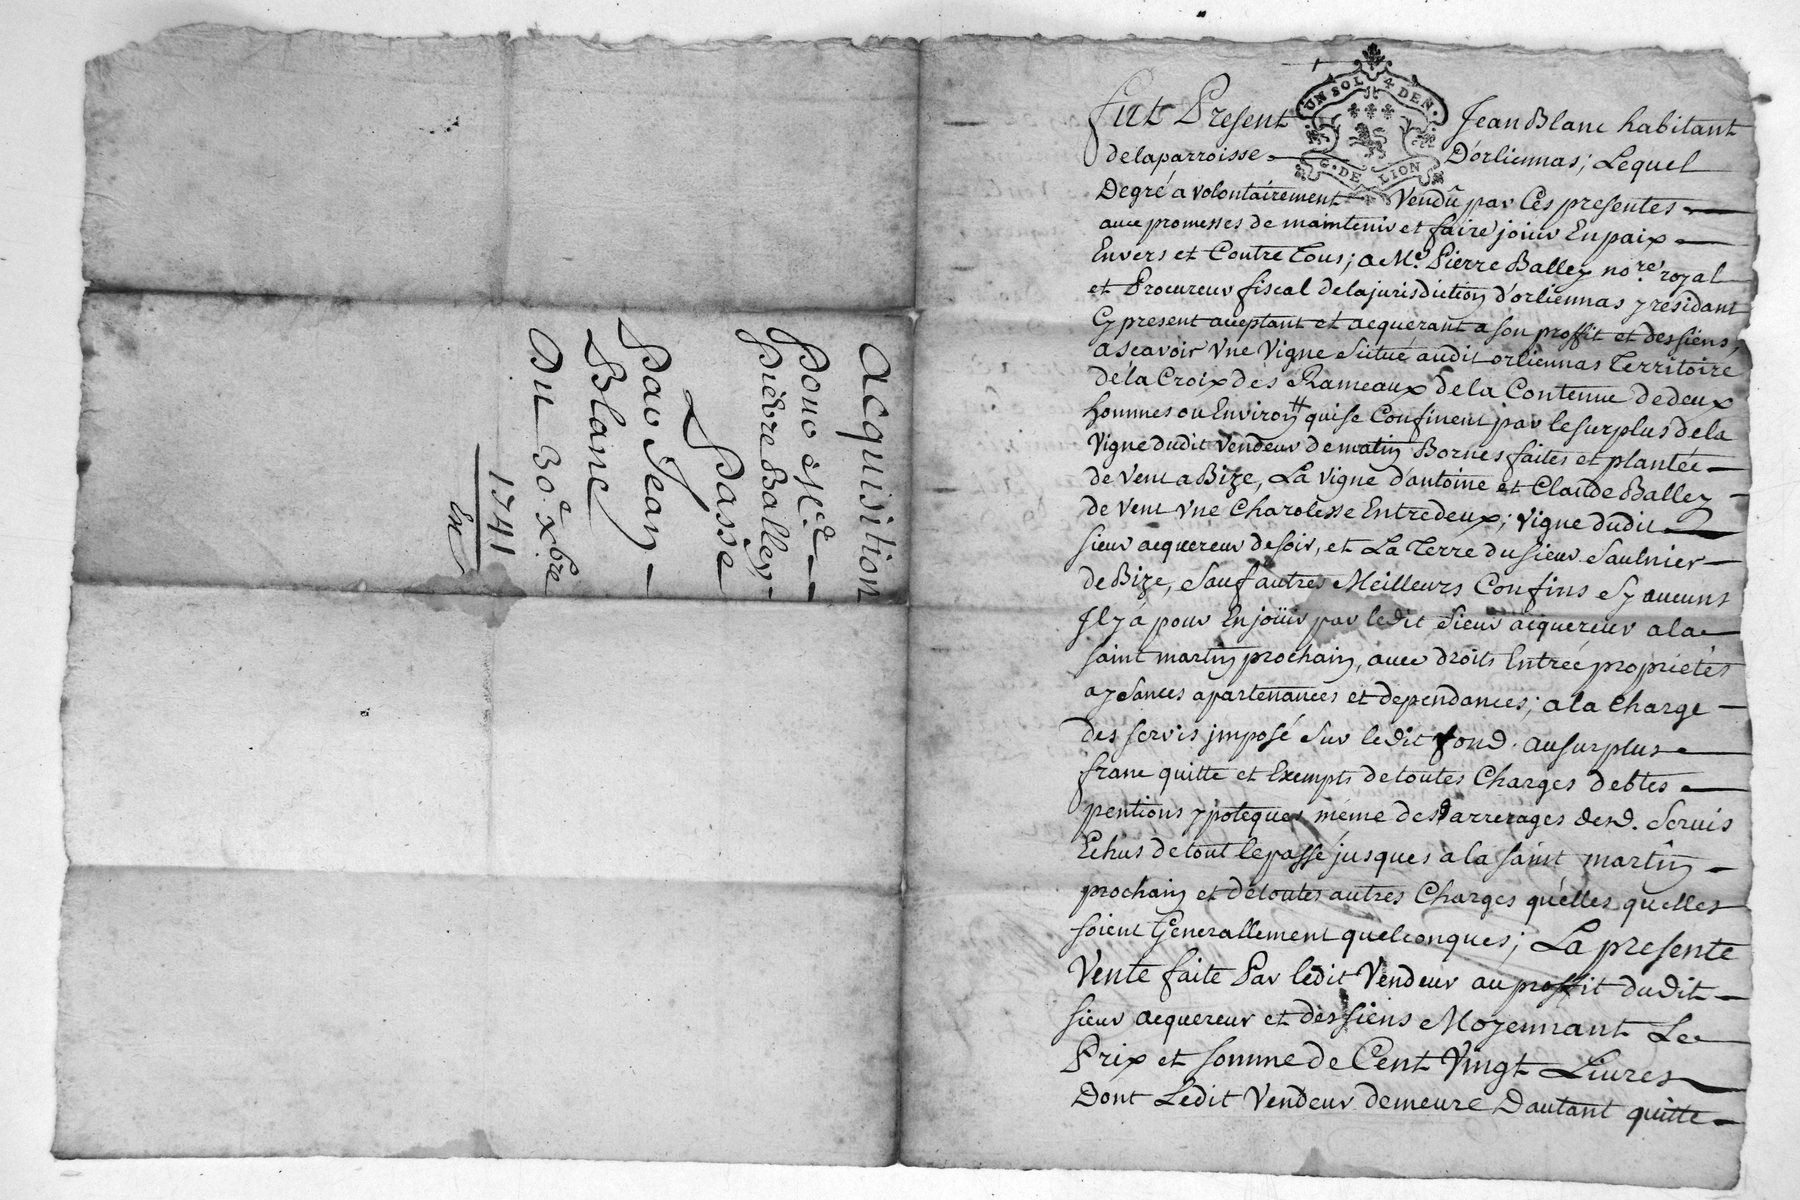 Acquisition
Pour Me
Pierre Balley
Passé
Par Jean
Blanc
Du 30e xbre
1741
UN SOL 4 DEN.
G. DE LION
fut Present Jean Blanc habitant
de laparroisse D'orliennas; Lequel
Degré a volontairement Vendû par Ces presentes
avec promesses de maintenir et faire jouir En paix
Envers et Contre Tous; a Me. Pierre Balley nore. royal
et Procureur fiscal de lajurisdiction d'orliennas y residant
Cy present acceptant et acquerant a son proffit et des siens,
a scavoir Vne Vigne Scitué audit orliennas Territoire
de la Croix des Rameaux de la Contenue de deux
hommes ou Environ quise Confinent par le surplus de la
Vigne dudit Vendeur de matin Bornes faites et plantée
de Vent a Bize, La Vigne d'antoine et Claude Balley
de Vent Vne Charolesse Entredeux; Vigne dudit
sieur acquereur de soir, et La Terre du sieur Saulnier
de Bize, Sauf autres Meilleurs Confins Sy aucuns
Il y á pour En joüir par ledit Sieur acquereur a la
saint martin prochain, avec droits Entrée proprietés
aysances apartenances et dependances; a la Charge
des servis jmposé Sur ledit fond. au surplus
franc quitte et Exempts de toutes Charges debtes
pentions ypoteques même des arrerages desd. Servis
Echus de tout le passé jusques à la saint martin
prochain et de toutes autres Charges qu'elles quelles
soient Generallement quelconques; La presente
Vente faite Par ledit Vendeur au proffit dudit
sieur acquereur et des siens Moyennant Le
Prix et somme de Cent Vingt Livres
Dont Ledit Vendeur demeure Dautant quitte